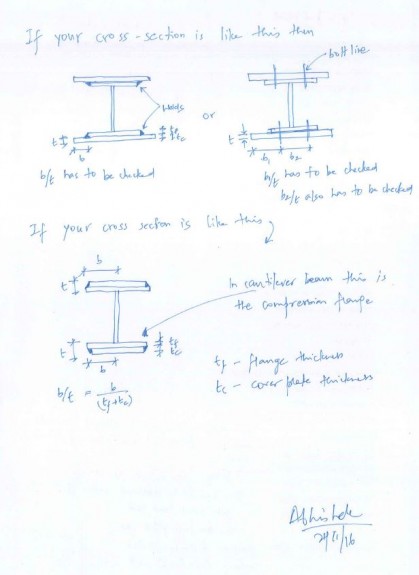 If your cross-section is like this then
bolt line
Welds
or
t
b
tf
tc
t
b1
b2
b/t has to be checked
b1/t has to be checked
b2/t also has to be checked
If your cross section is like this,
b
t
In cantilever beam this is
the compression flange
t
b
tf
tc
tf - flange thickness
tc - cover plate thickness
b/t = b/(tf+tc)